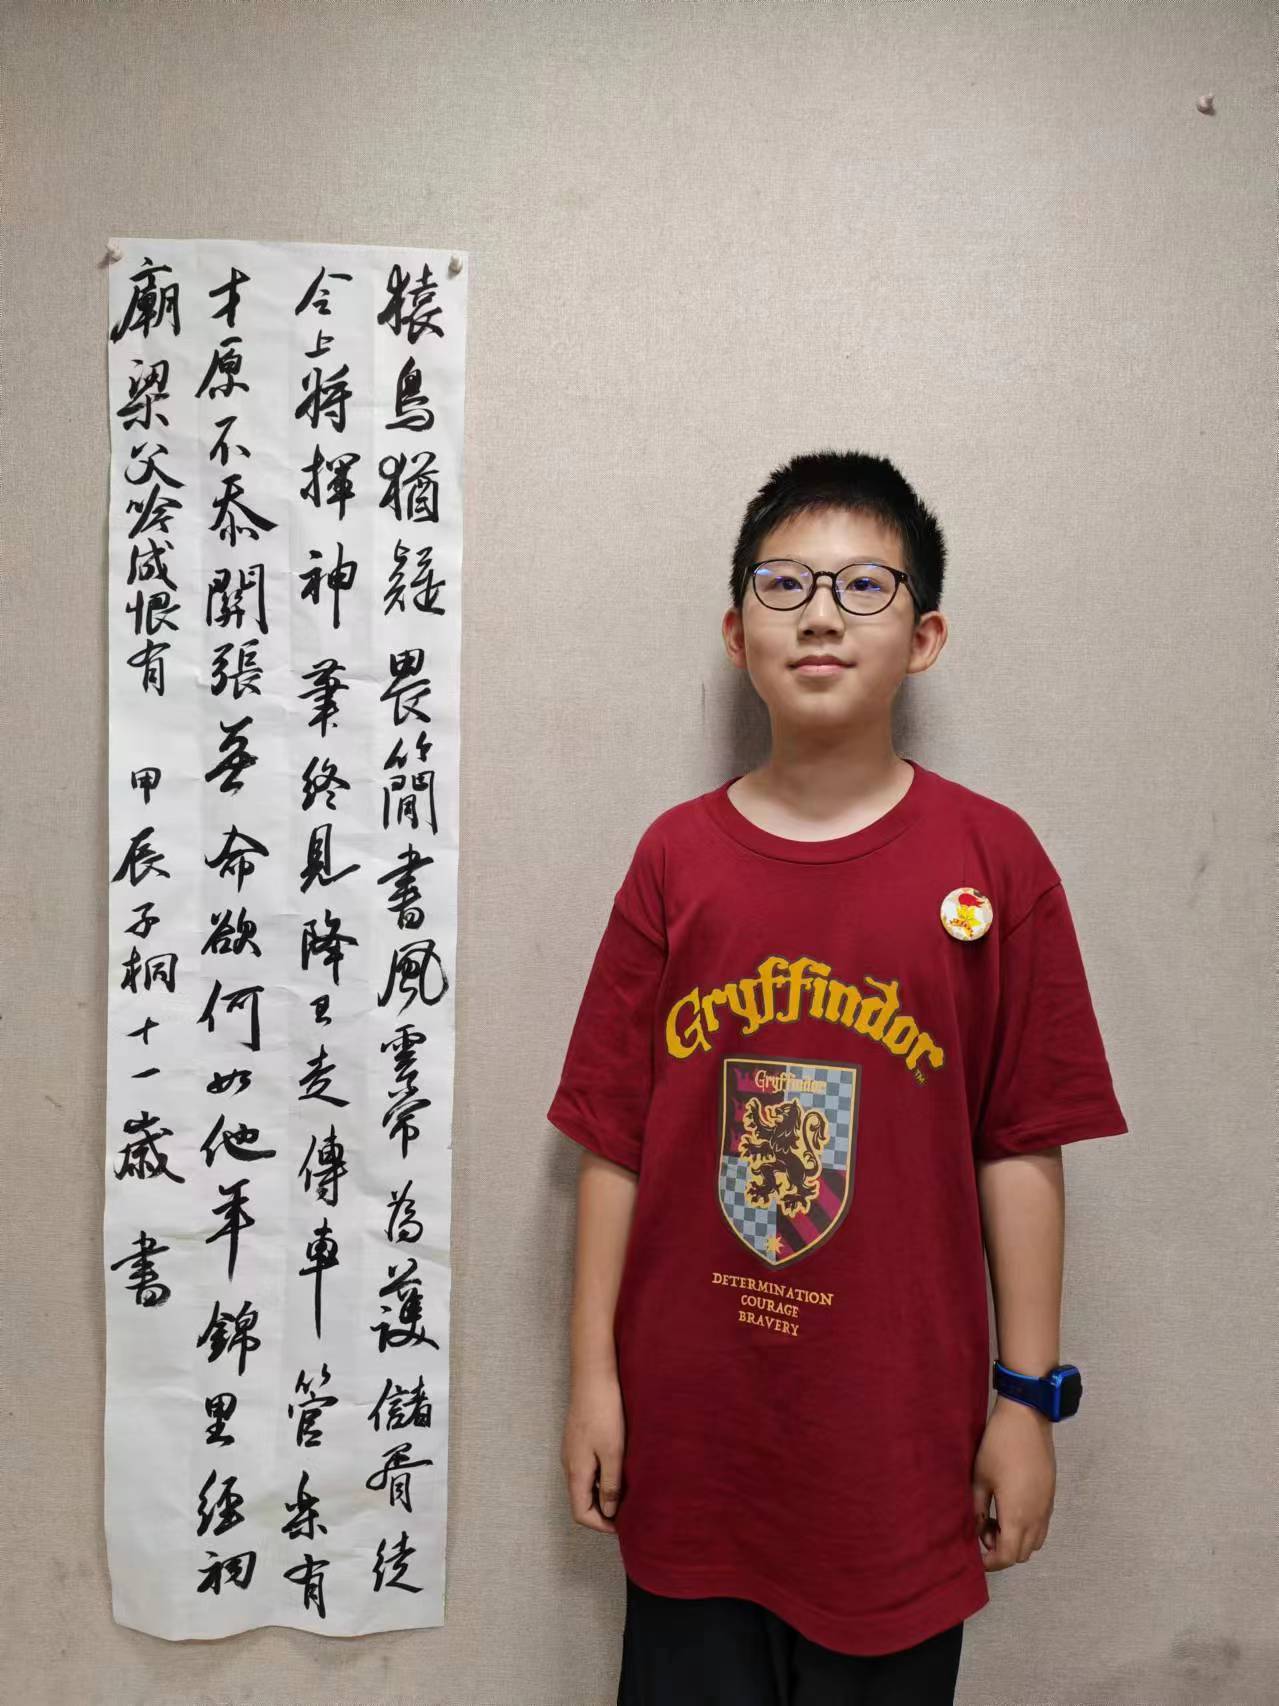 猿鳥猶疑畏簡書風雲常為護儲胥徒
令上將揮神筆終見降王走傳車管樂有
才原不忝關張無命欲何如他年錦里經祠
廟梁父吟成恨有 甲辰子桐十一歲 書
Gryffindor™
Gryffindor
DETERMINATION
COURAGE
BRAVERY